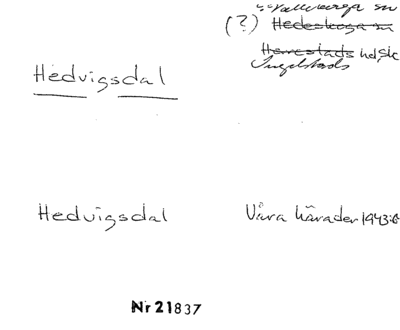 Vallberga sn
(?) Hedeskoga sn
Hedvigsdal
Herrestads hd, Sk
Ingelstads
Hedvigsdal
Våra härader 1943:6
Nr 21837